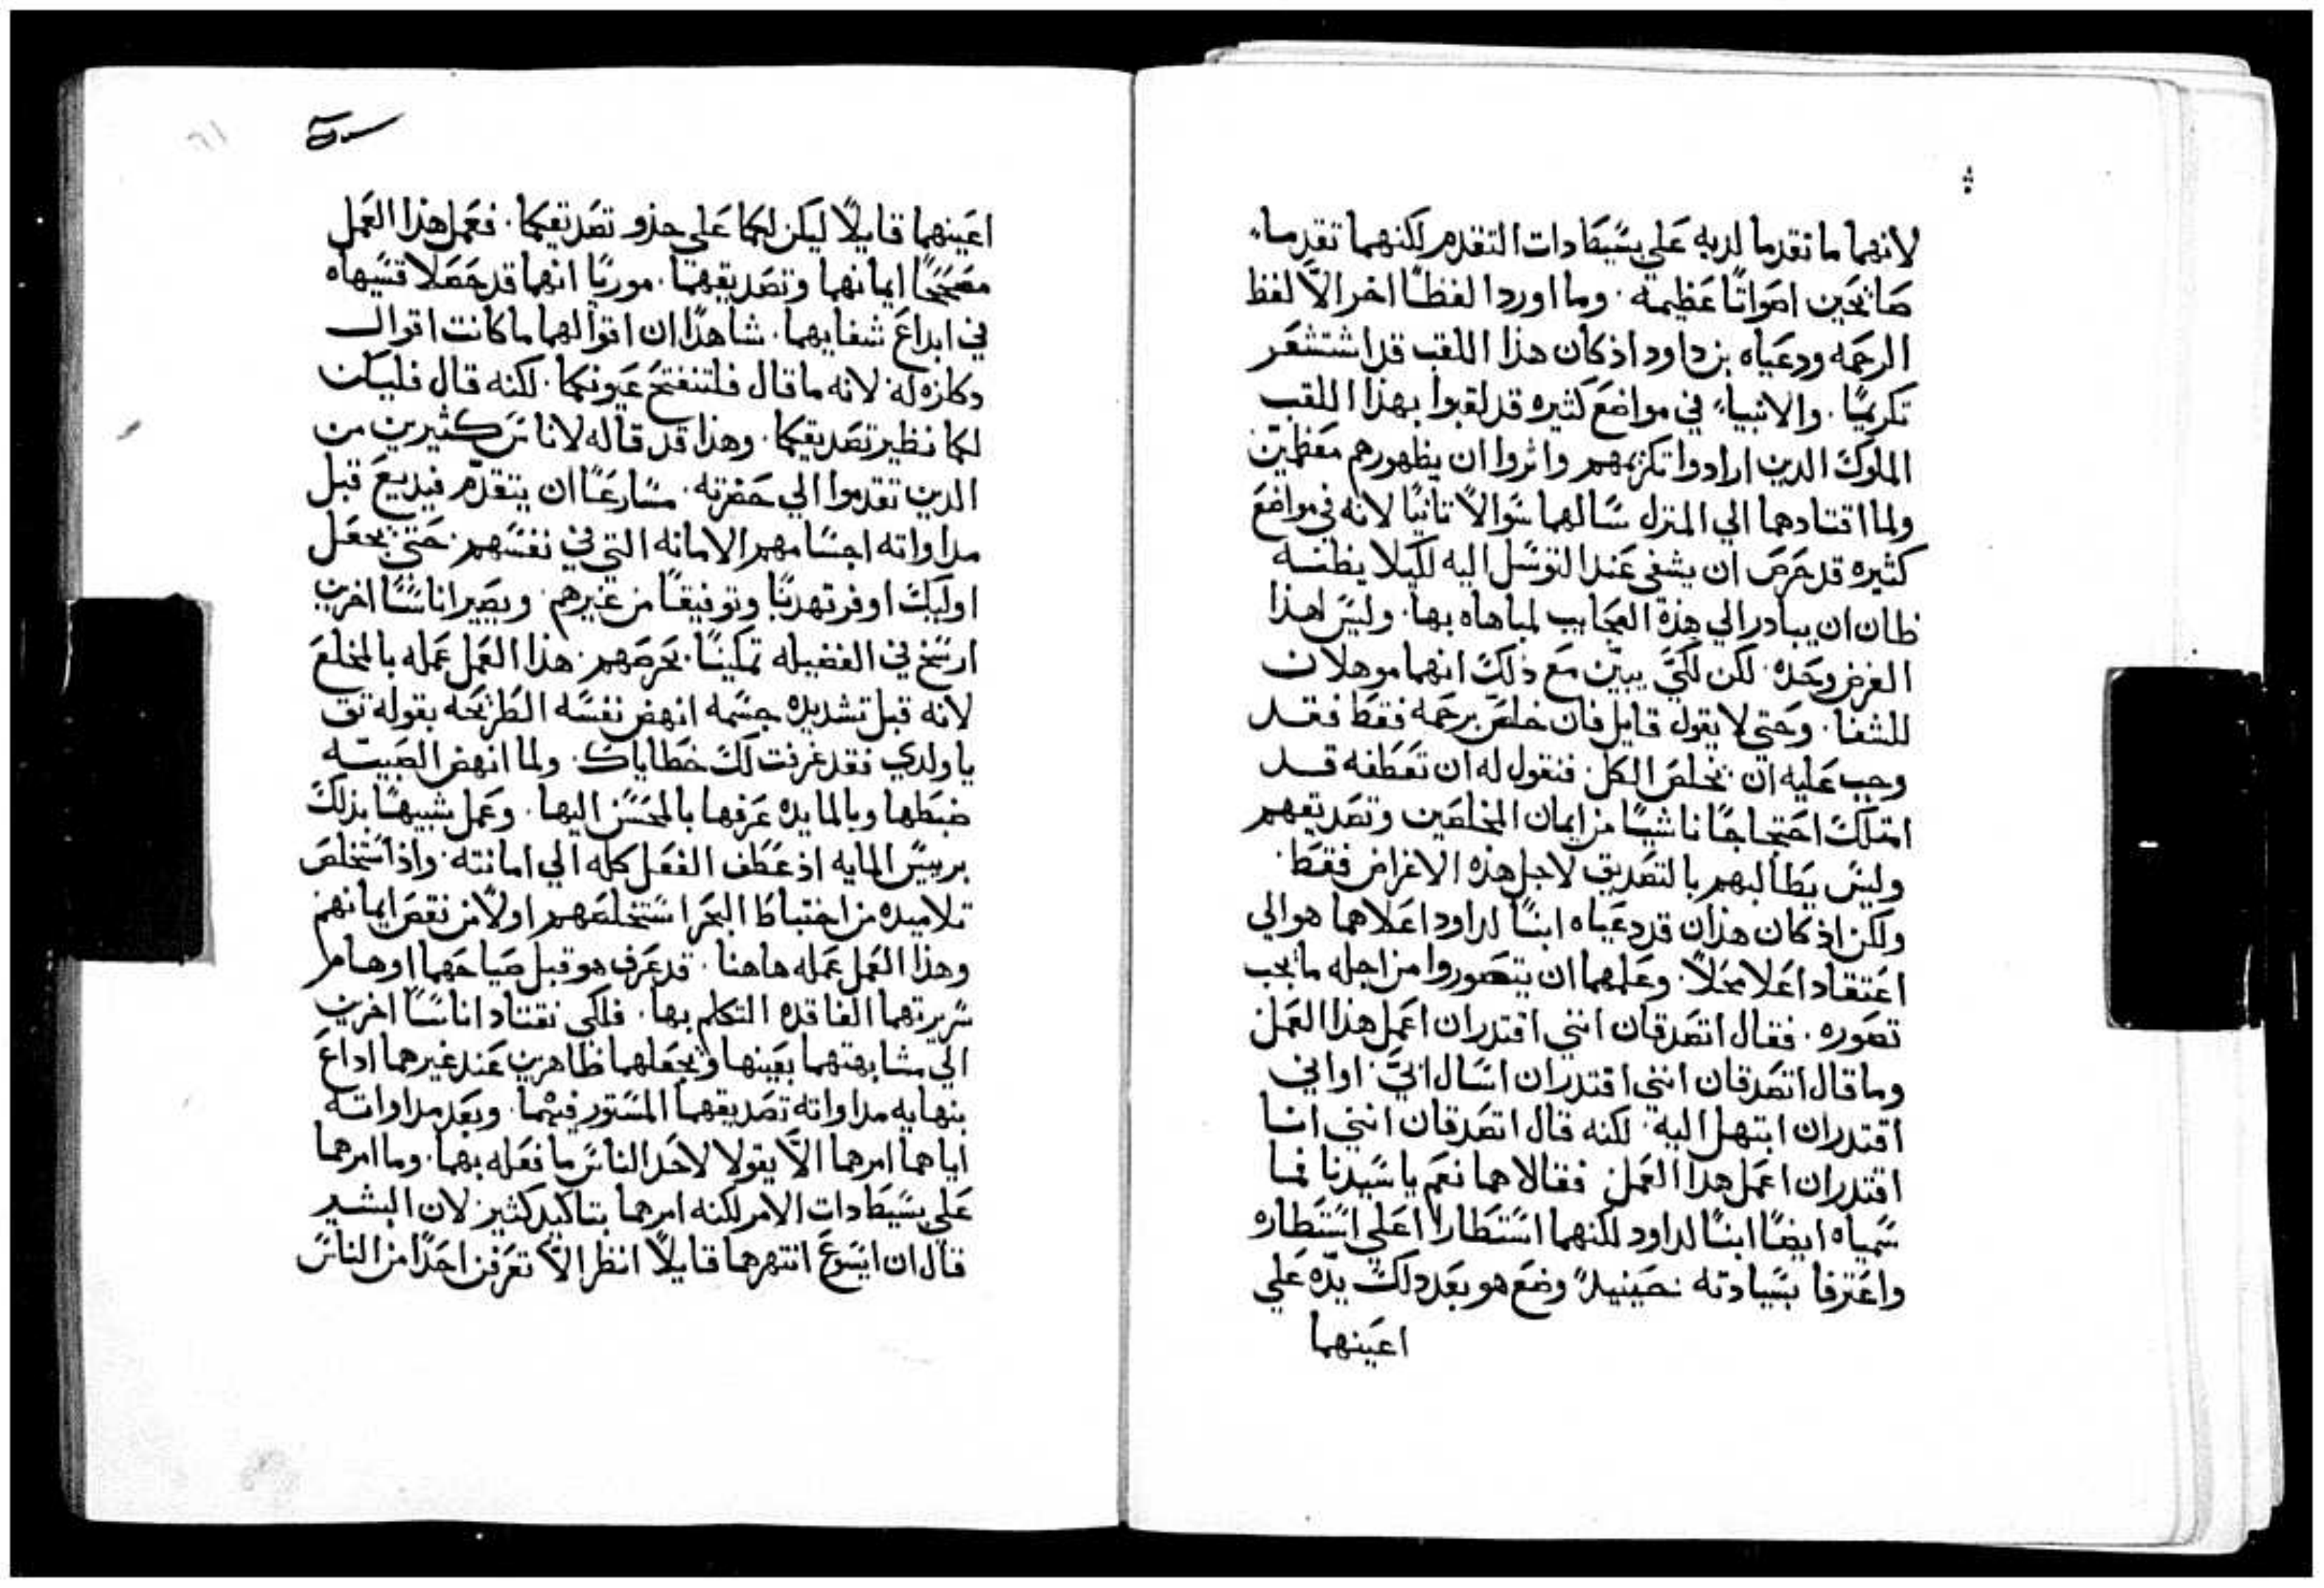 لانهما ما تقدما لديه علي بسيطا دات التقدم لكنهما تقدما
صايحين اصواتًا عظيمه. وما اوردا لفظًا اخر الاّ لفظ
الرحمه ودعياه بن داود اذ كان هذا اللقب قد اشتشعر
تكريمًا. والانبياء في مواضع كثيره قد لقبوا بهذا اللقب
الملوك الدين ارادوا تكريمهم واثروا ان يظهورهم معظمين
ولما اقتادهما الي المنزل سالهما سوالاً ثانيًا لانه في مواضع
كثيره قد حرص ان يشفي عند التوسل اليه لكيلا يظنه
ظان ان يبادر الي هذه العجايب لمباهاه بها. وليس لهذا
الغرض وحده. لكن لكي يبيّن مع ذلك انهما موهلان
للشفا. وحتي لا يقول قايل فان خلص برحمه فقط فقد
وجب عليه ان يخلص الكل. فنقول له ان تعطفه قد
امتلك احتجاجًا ناشيًا من ايمان المخلصين وتصديقهم
وليس يطالبهم بالتصديق لاجل هذه الاغراض فقط.
ولكن اذ كان هذان قد دعياه ابنًا لداود اعلاهما هو الي
اعتقاد اعلا محلاً. وعلمهما ان يتصوروا من اجله ما يجب
تصوره. فقال اتصدقان انني اقتدر ان اعمل هذا العمل
وما قال اتصدقان انني اقتدر ان اسال ابيّ. او اني
اقتدر ان ابتهل اليه. لكنه قال اتصدقان انني انا
اقتدر ان اعمل هدا العمل. فقالا هما نعم يا سيدنا فما
سمياه ايضًا ابنًا لداود لكنهما استطارا اعلي استطاره
واعترفا بسيادته. حينيدٍ وضع هو بعد دلك يدّه علي
اعينهما
اعينهما قايلاً ليكن لكما علي حذو تصديقكما. فعمل هذا العمل
مصححًا ايمانهما وتصديقهما. موريًا انهما قد حصلا قسيماه
في ابداع شفايهما. شاهدًا ان اقوالهما ما كانت اقوال
دكازه له لانه ما قال فلتنفتح عيونكما. لكنه قال فليكن
لكما نظير تصديقكما. وهذا قد قاله لاناس كثيرين من
الدين تقدموا الي حضرته. مسارعًا ان يتقدّم فيديع قبل
مداواته اجسامهم الامانه التي في نفسهم. حتي يجعل
اوليك اوفر تهدبًا وتوفيقًا من غيرهم. ويصير اناسًا اخرين
ارسخ في الفضيله تمكينًا بحرصهم. هذا العمل عمله بالمخلع
لانه قبل تشديده جسمه انهض نفسه الطريحه بقوله تق
يا ولدي فقد غرفت لك خطاياك. ولما انهض الصبيه
ضبطها وبالمايده عرفها بالمحسن اليها. وعمل شبيهًا بذلك
برييس المايه اذ عطف الفعل كله الي امانته. واذ استخلص
تلاميده من اختباط البحر استخلصهم اولاً من نقص ايمانهم
وهذا العمل عمله هاهنا. قد عرف هو قبل صياحهما اوهام
سريرتهما الفاقده التكلم بها. فلكي نقتاد اناسًا اخرين
الي مشابهتهما بعينها ويجعلهما ظاهرين عند غيرهما اداع
بنهايه مداواته تصديقهما المستور فيهما. وبعد مداواته
اياهما امرهما الاّ يقولا لاحد الناس ما فعله بهما. وما امرهما
علي بسيطا دات الامر لكنه امرهما بتاكيد كثير. لان البشير
قال ان ايسوع انتهرهما قايلاً انظرا الاّ تعرفن احدًا من الناس